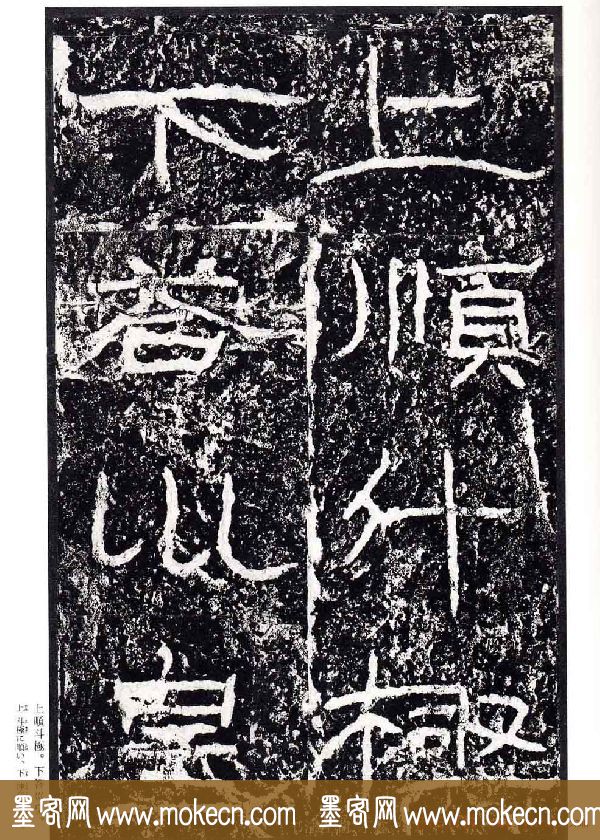 上順斗極
下荅巛皇
上順斗極。下
上 斗極に順い、下
墨客网 www.mokecn.com 墨客网 www.mokecn.com